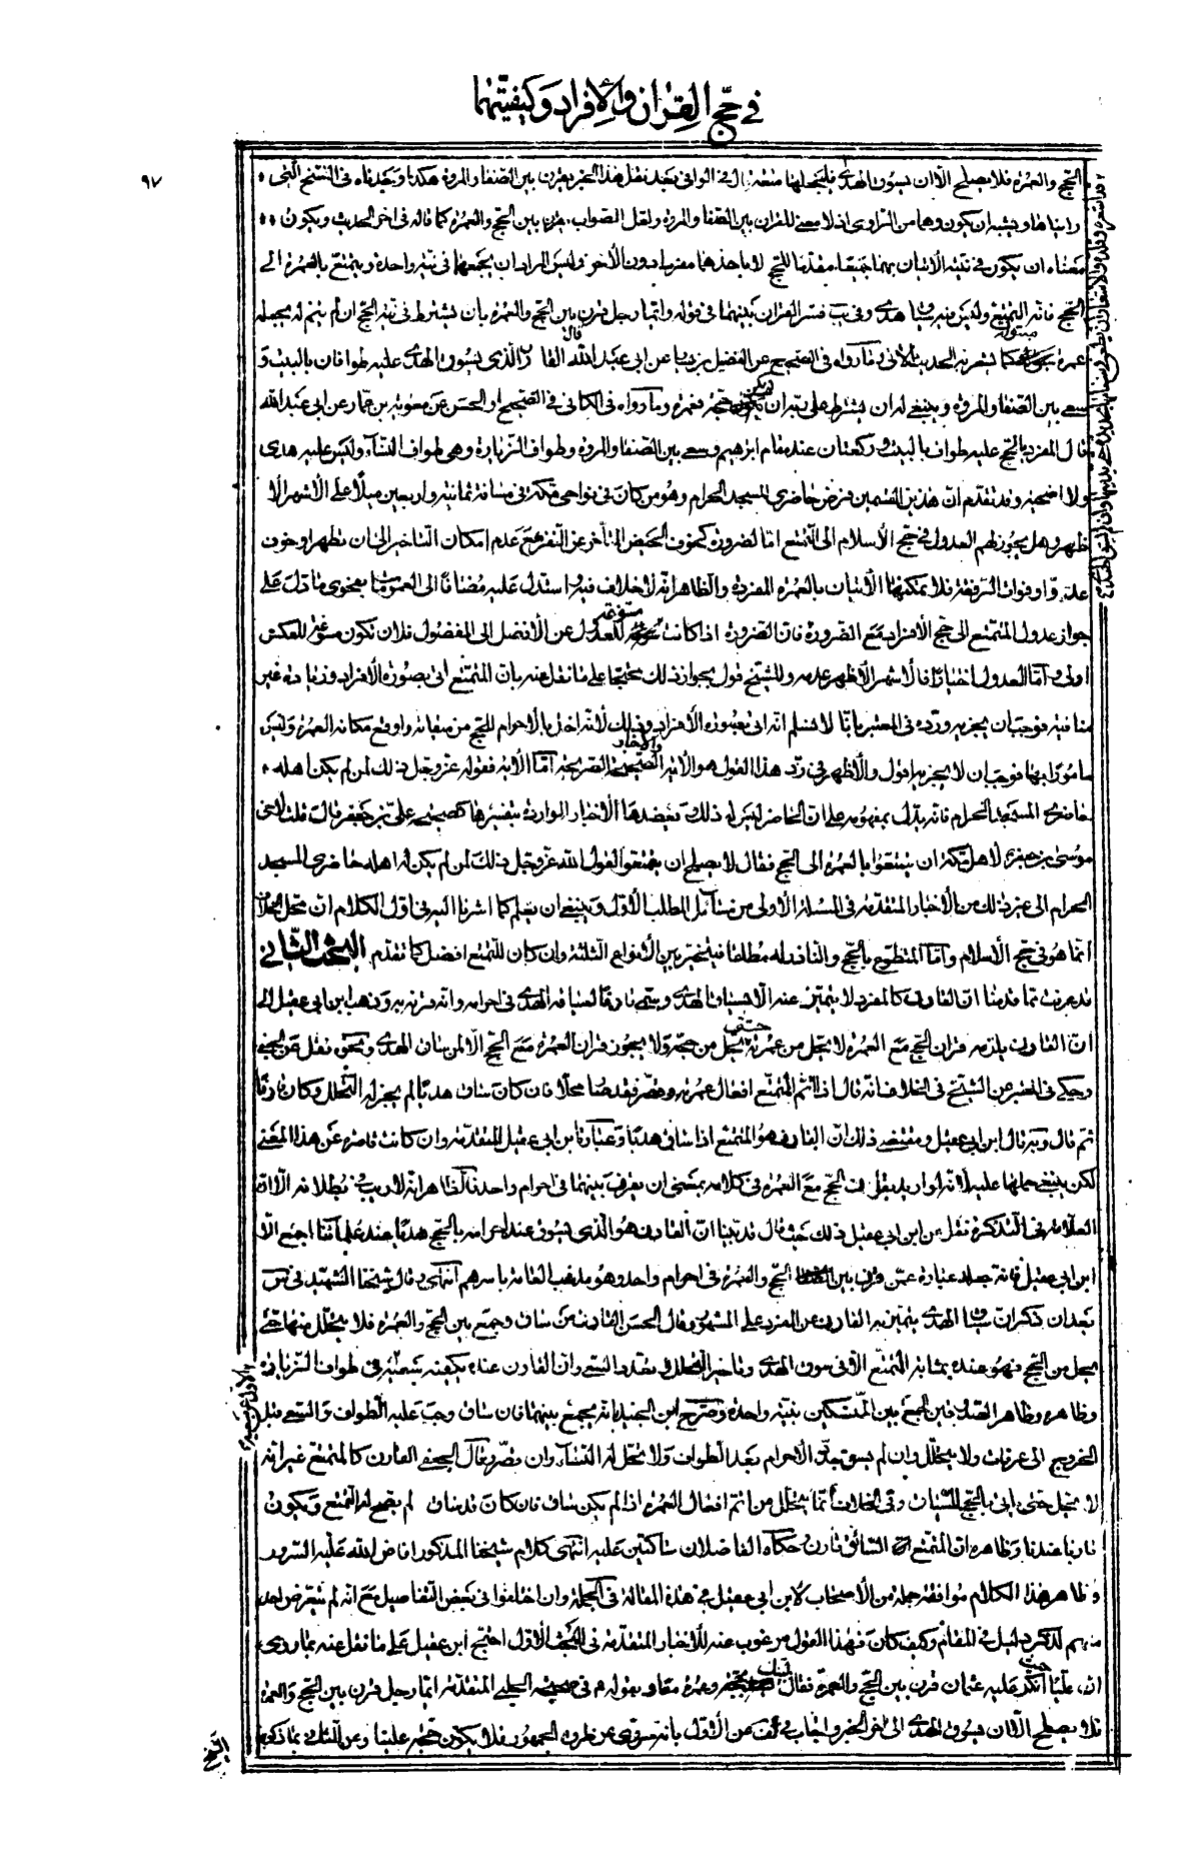 في حج القران والافراد وكيفيتهما
٩٧
الحج والعمرة فلا يصلح الا ان يسوق الهدي فليجعلها متعة قال في الوافي بعد نقل هذا الخبر يقرن بين الصفا والمروة هكذا وجدناه في النسخ التي
رايناها ويشبه ان يكون وهما من الراوي اذ لا معنى للقران بين الصفا والمروة ولعل الصواب يقرن بين الحج والعمرة كما قاله في اخر الحديث ويكون
معناه ان يكون في نيته الاتيان بهما جميعا مقدما للحج لا ياخذهما مفردا دون الاخر وليس المراد ان يجمعهما في نية واحدة ويتمتع بالعمرة الى
الحج فانه التمتع وليس فيه سياق هدي وفي يب فسر القران بينهما في قوله وايما رجل قرن بين الحج والعمرة بان يشترط في نية الحج ان لم يتم له يجعله
عمرة مبتولة كما يشعر به الحديث الاتي وما رواه في الصحيح عن الفضيل بن يسار عن ابي عبد الله قال القارن الذي يسوق الهدي عليه طوافان بالبيت و
سعي بين الصفا والمروة وينبغي له ان يشترط على ربه ان لم يكن حجة فعمرة وما رواه في الكافي في الصحيح او الحسن عن معوية بن عمار عن ابي عبد الله
قال المفرد بالحج عليه طواف بالبيت وركعتان عند مقام ابرهيم وسعي بين الصفا والمروة وطواف الزيارة وهي طواف النساء وليس عليه هدي
ولا اضحية وقد تقدم ان هذين القسمين فرض حاضري المسجد الحرام وهو من كان في نواحي مكة في مسافة ثمانية واربعين ميلا على الاشهر الا
ظهر وهل يجوز لهم العدول في حج الاسلام الى التمتع اما لضرورة كخوف الحيض المتاخر عن النفر مع عدم امكان التاخير الى ان تطهر او خوف
عدو او فوات الرفقة فلا يمكنها الاتيان بالعمرة المفردة والظاهر انه لا خلاف فيه واستدل عليه مضافا الى العمومات بفحوى ما دل على
جواز عدول المتمتع الى حج الافراد مع الضرورة فان الضرورة اذا كانت مسوغة للعدول عن الافضل الى المفضول فلان تكون مسوغة للعكس
اولى واما العدول اختيارا فالاشهر الاظهر عدمه وللشيخ قول بجواز ذلك محتجا على ما نقل عنه بان المتمتع اتى بصورة الافراد وزيادة غير
منافية فوجب ان يجزيه ورده في المعتبر بانا لا نسلم انه اتى بصورة الافراد وذلك لانه اخل بالاحرام للحج من ميقاته واوقع مكانه العمرة وليس
مامورا بها فوجب ان لا يجزيه اقول والاظهر في رد هذا القول هو الاية والاخبار الصحيحة الصريحة اما الاية فقوله عز وجل ذلك لمن لم يكن اهله
حاضري المسجد الحرام فانه يدل بمفهومه على ان الحاضر ليس له ذلك وتعضدها الاخبار الواردة بتفسيرها كصحيحة علي بن جعفر قال قلت لاخي
موسى بن جعفر لاهل مكة ان يتمتعوا بالعمرة الى الحج فقال لا يصلح ان يتمتعوا لقول الله عز وجل ذلك لمن لم يكن اهله حاضري المسجد
الحرام الى غير ذلك من الاخبار المتقدمة في المسئلة الاولى من مسائل المطلب الاول وينبغي ان يعلم كما اشرنا اليه في اول الكلام ان محل الخلاف
انما هو في حج الاسلام واما المتطوع بالحج والناذر له مطلقا فيتخير بين الانواع الثلثة وان كان للتمتع افضل كما تقدم البحث الثاني
قد عرفت مما قدمنا ان القارن كالمفرد لا يتميز عنه الا بسياق الهدي وسمي قارنا لسياقه الهدي في احرامه وانه قرنه به وذهب ابن ابي عقيل الى
ان القارن يلزمه قران الحج مع العمرة لا يحل من عمرته حتى يحل من حجه ولا يجوز قران العمرة مع الحج الا لمن ساق الهدي ونحوه نقل عن الجعفي
وحكى في المعتبر عن الشيخ في الخلاف انه قال اذا اتم المتمتع افعال عمرته وقصر فقد صار محلا فان كان ساق هديا لم يجز له التحلل وكان قارنا
ثم قال وبه قال ابن ابي عقيل ومقتضى ذلك ان القارن هو المتمتع اذا ساق هديا وعبارة ابن ابي عقيل المتقدمة وان كانت قاصرة عن هذا المعنى
لكن ينبغي حملها عليه لانه لو اريد بقران الحج مع العمرة في كلامه بمعنى ان يقرن بينهما في احرام واحد فالظاهر انه لا ريب في بطلانه الا ان
العلامة في التذكرة نقل عن ابن ابي عقيل ذلك حيث قال قد بينا ان القارن هو الذي يسوق عند احرامه بالحج هديا عند علمائنا اجمع الا
ابن ابي عقيل فانه جعله عبارة عمن قرن بين الحج والعمرة في احرام واحد وهو مذهب العامة باسرهم انتهى وقال شيخنا الشهيد في س
بعد ان ذكر ان سياق الهدي يتميز به القارن عن المفرد على المشهور وقال الحسن القارن من ساق وجمع بين الحج والعمرة فلا يتحلل منها حتى
يحل من الحج فهو عنده بمثابة المتمتع الا في سوق الهدي وتاخير التحلل وتعدد السعي وان القارن عنده يكفيه سعيه في طواف الزيارة
وظاهره وظاهر الصدوقين الجمع بين النسكين بنية واحدة وصرح ابن الجنيد بانه يجمع بينهما فان ساق وجب عليه الطواف والسعي قبل
الخروج الى عرفات ولا يتحلل وان لم يسق جدد الاحرام بعد الطواف ولا تحل له النساء وان قصر وقال الجعفي القارن كالمتمتع غير انه
لا يحل حتى ياتي بالحج للسياق وفي الخلاف انما يتحلل من اتم افعال العمرة اذا لم يكن ساق فان كان قد ساق لم يصح له التمتع ويكون
قارنا عندنا وظاهره ان المتمتع السائق قارن وحكاه الفاضلان ساكتين عليه انتهى كلام شيخنا المذكور افاض الله عليه السرور
وظاهر هذا الكلام موافقة جملة من الاصحاب لابن ابي عقيل في هذه المقالة في الجملة وان اختلفوا في بعض التفاصيل مع انه لم يتعرض احد
منهم لذكر دليل في المقام وكيف كان فهذا القول مرغوب عنه للاخبار المتقدمة في البحث الاول احتج ابن عقيل على ما نقل عنه بما روي
ان عليا حيث انكر عليه عثمان قرن بين الحج والعمرة فقال لبيك بحجة وعمرة معا وبقوله ع في صحيحة الحلبي المتقدمة ايما رجل قرن بين الحج والعمرة
فلا يصلح الا ان يسوق الهدي الى اخر الخبر واجاب في لف عن الاول بانه مروي من طرق الجمهور فلا يكون حجة علينا وعن الثاني بما ذكره
الشيخ